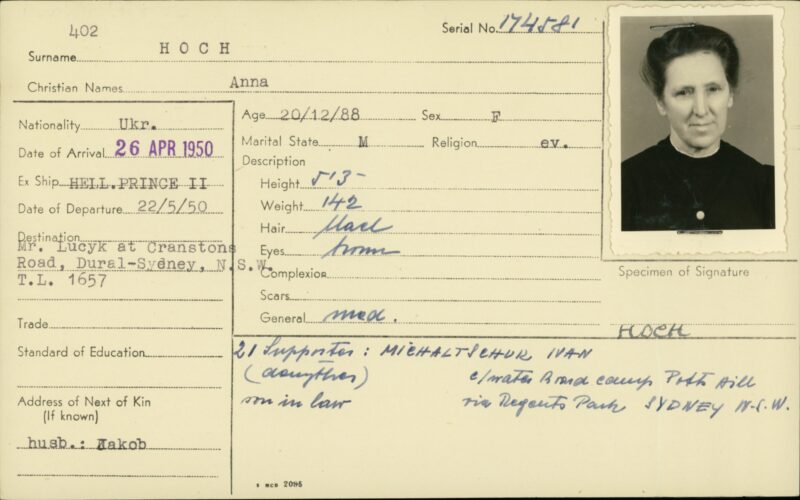 402
Serial No. 174581
Surname HOCH
Christian Names Anna
Nationality Ukr.
Date of Arrival 26 APR 1950
Ex Ship HELL.PRINCE II
Date of Departure 22/5/50
Destination
Mr. Lucyk at Cranstons
Road, Dural-Sydney, N.S.W.
T.L. 1657
Trade
Standard of Education
Address of Next of Kin
(If known)
husb.: Jakob
Age 20/12/88 Sex F
Marital State M Religion ev.
Description
Height 513
Weight 142
Hair black
Eyes brown
Complexion
Scars
General med.
Specimen of Signature
HOCH
21 Supporter: MICHALTSCHUK IVAN
(daughter)
son in law
c/water Board camp Potts Hill
via Regents Park SYDNEY N.S.W.